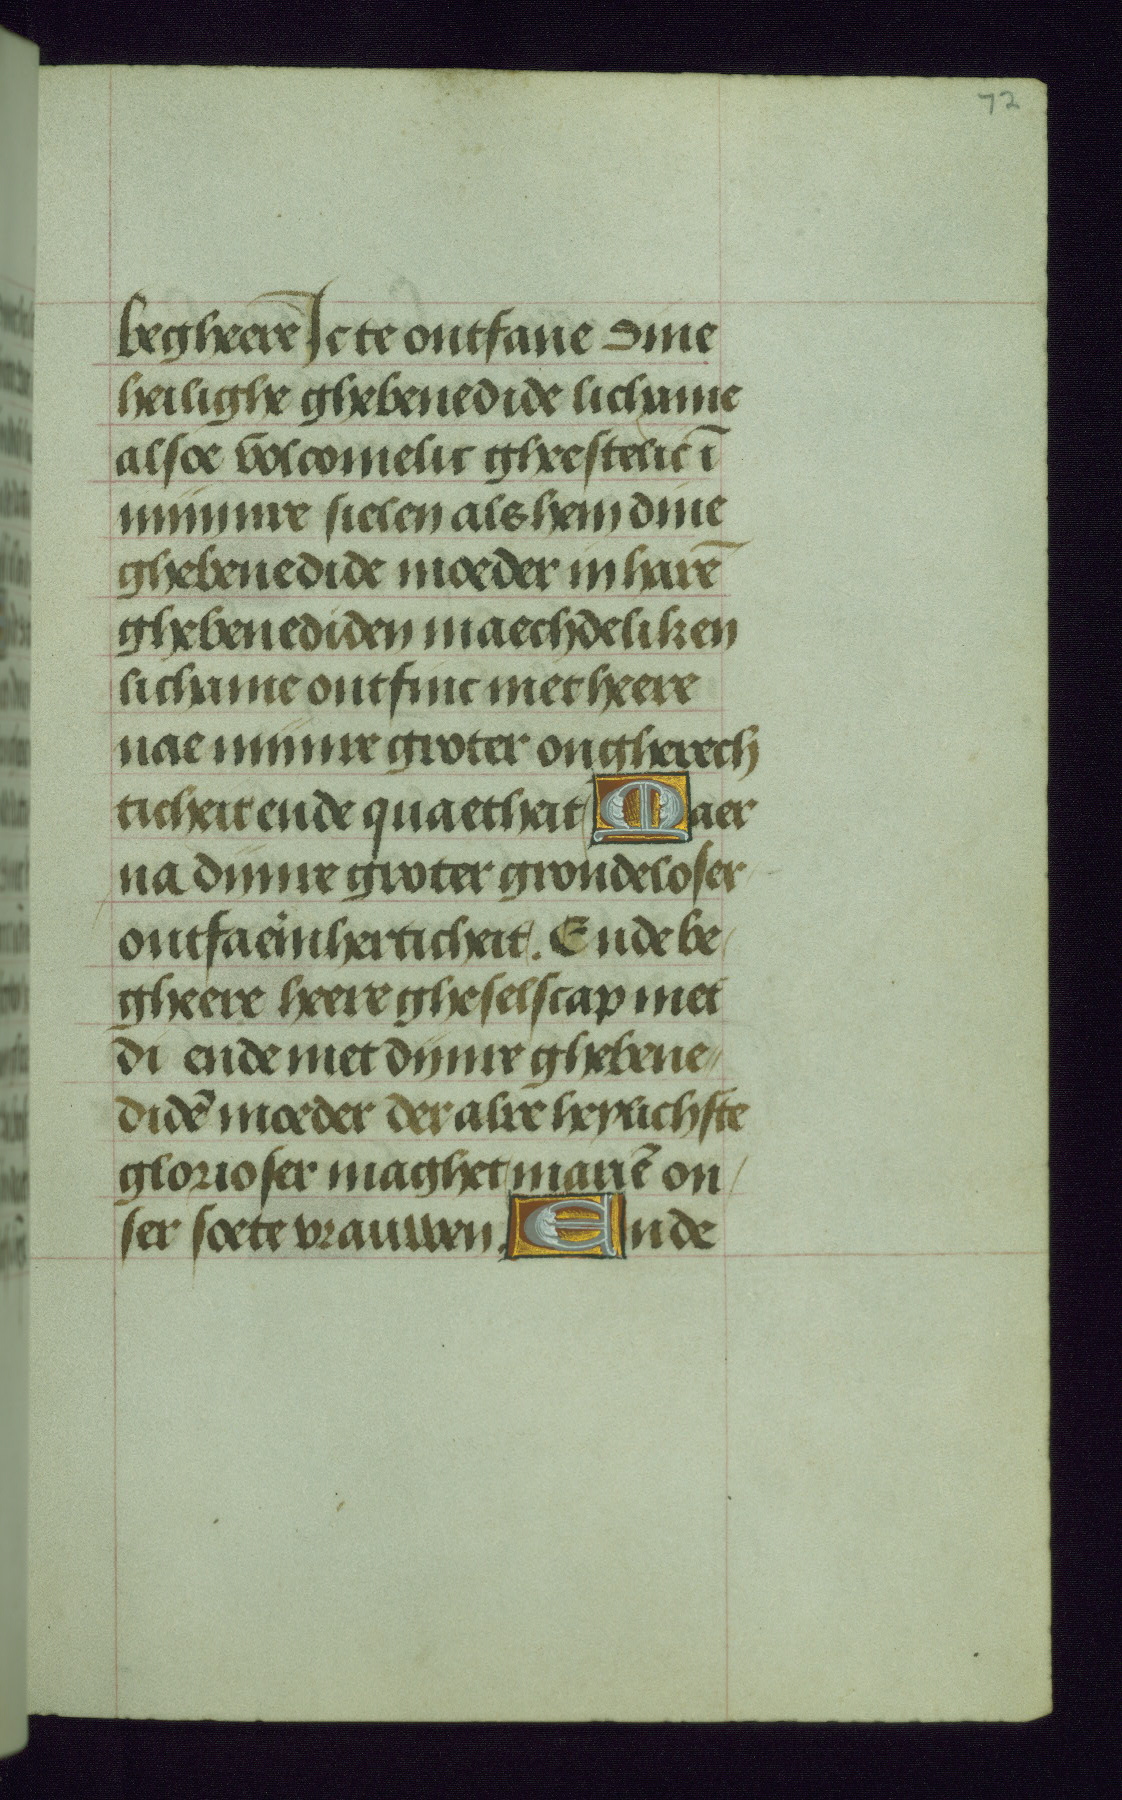 72
begheerē Ic te ontfane dine
heilighe ghebenedide lichame
alsoe volcomelic gheestelic ī
mijnre sielen als hem dine
ghebenedide moeder in harē
ghebenediden maechdeliken
lichame ontfinc niet heere
nae mijnre groter ongherech
ticheit ende quaetheit Maer
na dijnre groter grondeloser
ontfaermherticheit. Ende be
gheere heere gheselscap met
di ende met dijnre ghebene
didē moeder der alre heylichste
glorioser maghet mariē on
ser soete vrauwen. Ende